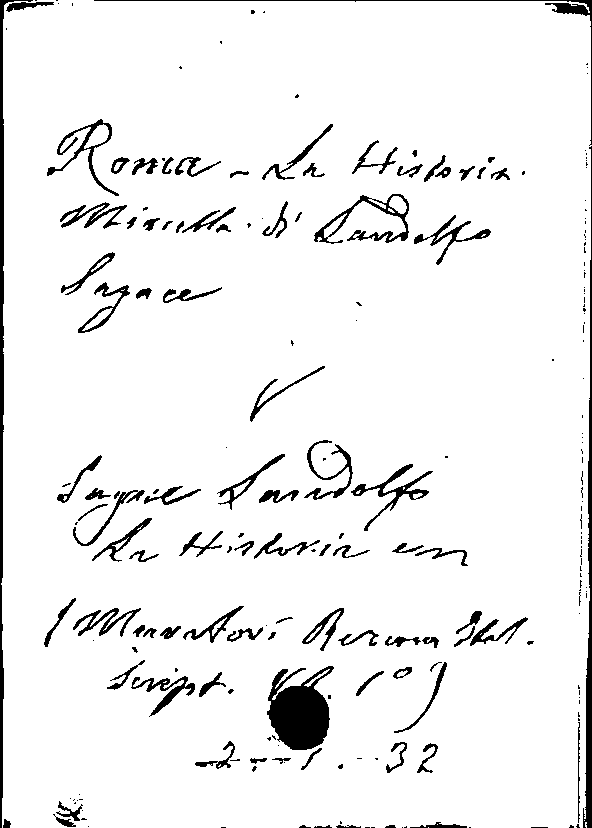 Roma - La Historia
Miscella di Landolfo
Sagace
V
Sagace Landolfo
La Historia
(Muratori Rerum Ital.
Script. 1º)
2 - 1. 32